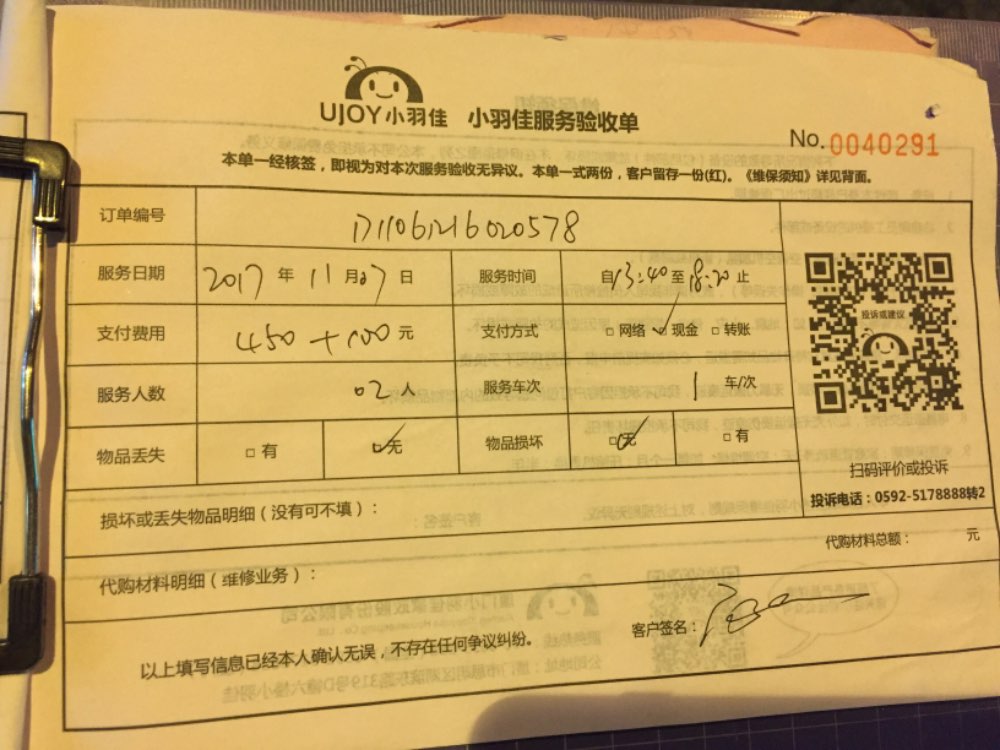 UJOY小羽佳 小羽佳服务验收单
No. 0040291
本单一经核签，即视为对本次服务验收无异议。本单一式两份，客户留存一份(红)。《维保须知》详见背面。
订单编号 D11061216020578
服务日期 2017 年 11 月07 日 服务时间 自13:40至18:20止
支付费用 450 + 100 元 支付方式 □网络 ☑现金 □转账
服务人数 02 人 服务车次 1 车/次
物品丢失 □ 有 ☑无 物品损坏 ☑无 □ 有
投诉或建议
扫码评价或投诉
投诉电话：0592-5178888转2
损坏或丢失物品明细（没有可不填）：
代购材料总额： 元
代购材料明细（维修业务）：
客户签名：
以上填写信息已经本人确认无误，不存在任何争议纠纷。